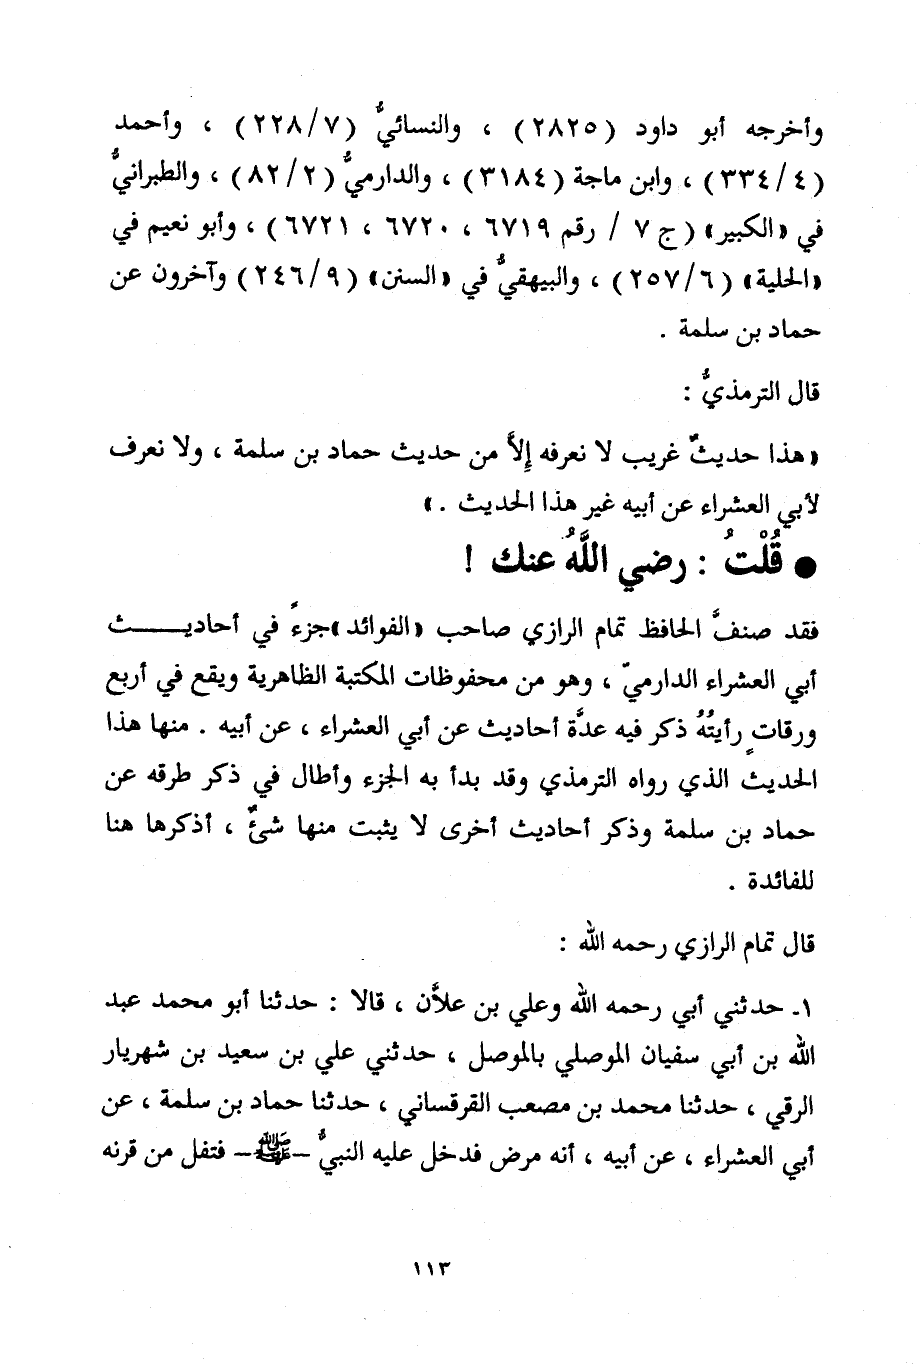 وأخرجه أبو داود (٢٨٢٥) ، والنسائيُّ (٢٢٨/٧) ، وأحمد
(٣٣٤/٤) ، وابن ماجة (٣١٨٤) ، والدارميُّ (٨٢/٢) ، والطبرانيُّ
في «الكبير» (ج ٧ / رقم ٦٧١٩ ، ٦٧٢٠ ، ٦٧٢١) ، وأبو نعيم في
«الحلية» (٢٥٧/٦) ، والبيهقيُّ في «السنن» (٢٤٦/٩) وآخرون عن
حماد بن سلمة .
قال الترمذيُّ :
«هذا حديثٌ غريب لا نعرفه إلاَّ من حديث حماد بن سلمة ، ولا نعرف
لأبي العشراء عن أبيه غير هذا الحديث . »
● قُلْتُ : رضي اللَّهُ عنك !
فقد صنفَّ الحافظ تمام الرازي صاحب «الفوائد» جزءً في أحاديـــث
أبي العشراء الدارميّ ، وهو من محفوظات المكتبة الظاهرية ويقع في أربع
ورقاتٍ رأيتُهُ ذكر فيه عدَّة أحاديث عن أبي العشراء ، عن أبيه . منها هذا
الحديث الذي رواه الترمذي وقد بدأ به الجزء وأطال في ذكر طرقه عن
حماد بن سلمة وذكر أحاديث أخرى لا يثبت منها شئٌ ، أذكرها هنا
للفائدة .
قال تمام الرازي رحمه الله :
١ـ حدثني أبي رحمه الله وعلي بن علاَّن ، قالا : حدثنا أبو محمد عبد
الله بن أبي سفيان الموصلي بالموصل ، حدثني علي بن سعيد بن شهريار
الرقي ، حدثنا محمد بن مصعب القرقساني ، حدثنا حماد بن سلمة ، عن
أبي العشراء ، عن أبيه ، أنه مرض فدخل عليه النبيُّ –ﷺ– فتفل من قرنه
١١٣